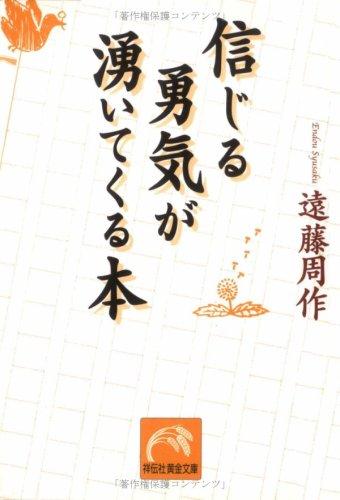 「著作権保護コンテンツ」
信じる
勇気が
湧いてくる本
Endou Syusaku
遠藤周作
祥伝社黄金文庫
「著作権保護コンテンツ」